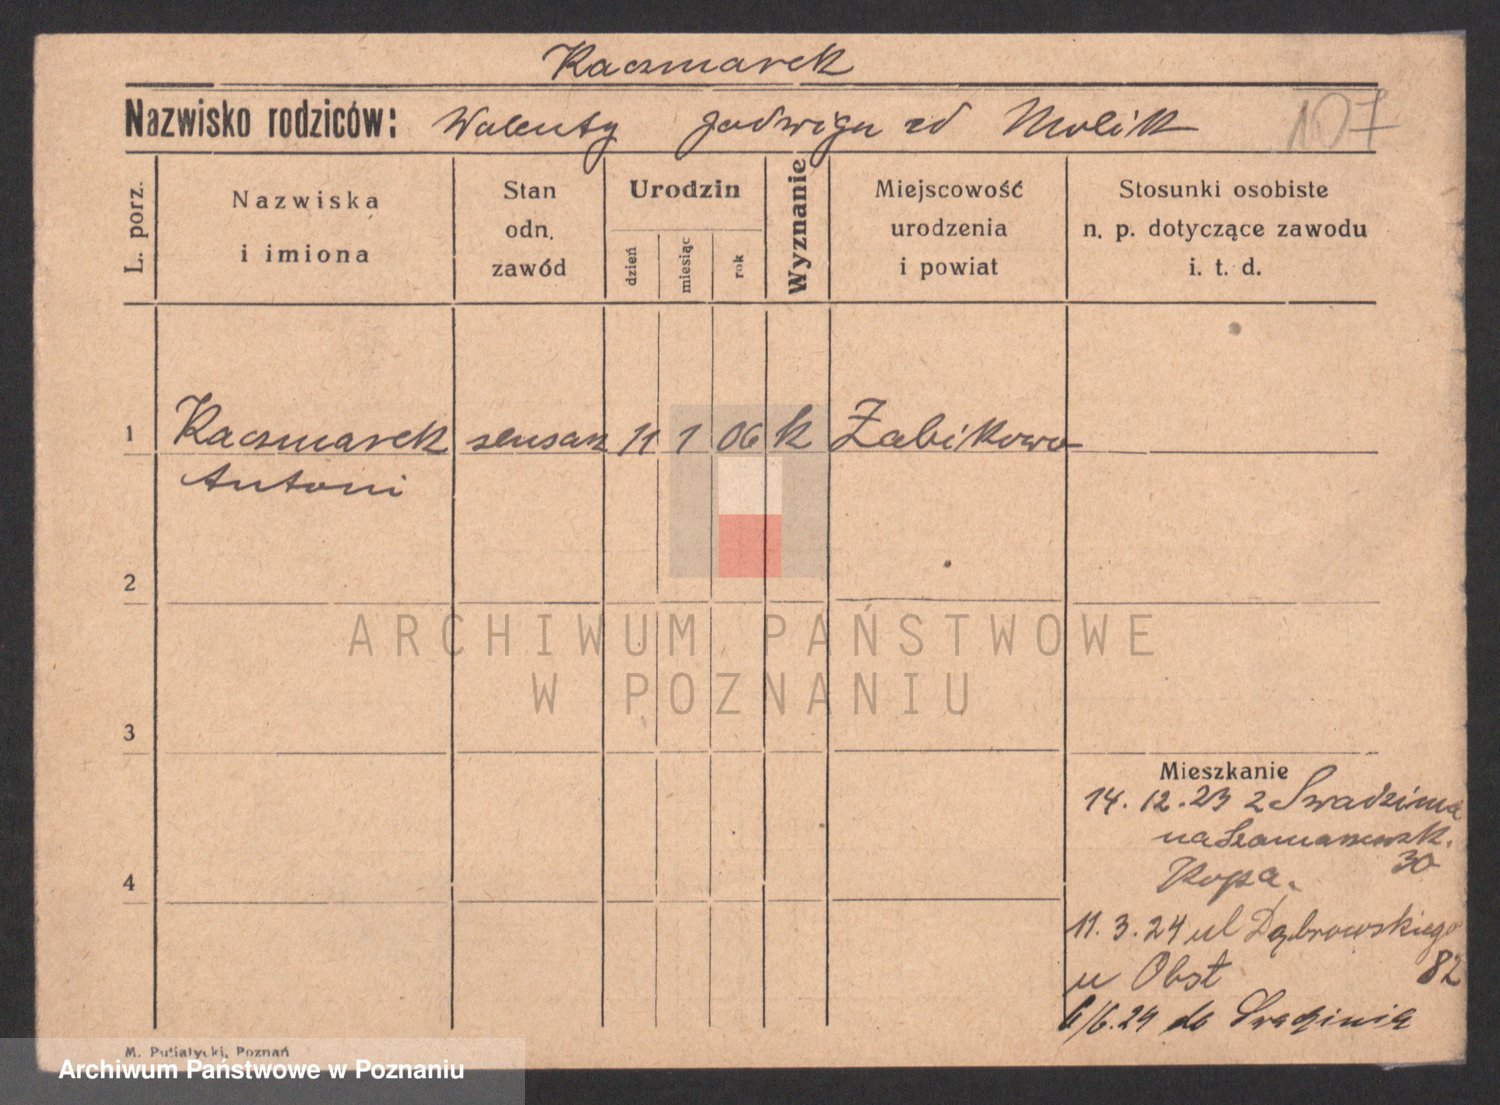 Kaczmarek
Nazwisko rodziców: Walenty Jadwiga zd Molik 107
L. porz.
Nazwiska
i imiona
Stan
odn.
zawód
Urodzin
dzień
miesiąc
rok
Wyznanie
Miejscowość
urodzenia
i powiat
Stosunki osobiste
n. p. dotyczące zawodu
i. t. d.
1 Kaczmarek 11 1 06 k Żabikowo
Antoni
2
3
4
Mieszkanie
14. 12. 23 z Swadzima
na
30
Kopa.
11. 3. 24 ul Dąbrowskiego
u Obst 82
6/6.24 do
M. Putiatycki, Poznań
ARCHIWUM PAŃSTWOWE
W POZNANIU
Archiwum Państwowe w Poznaniu